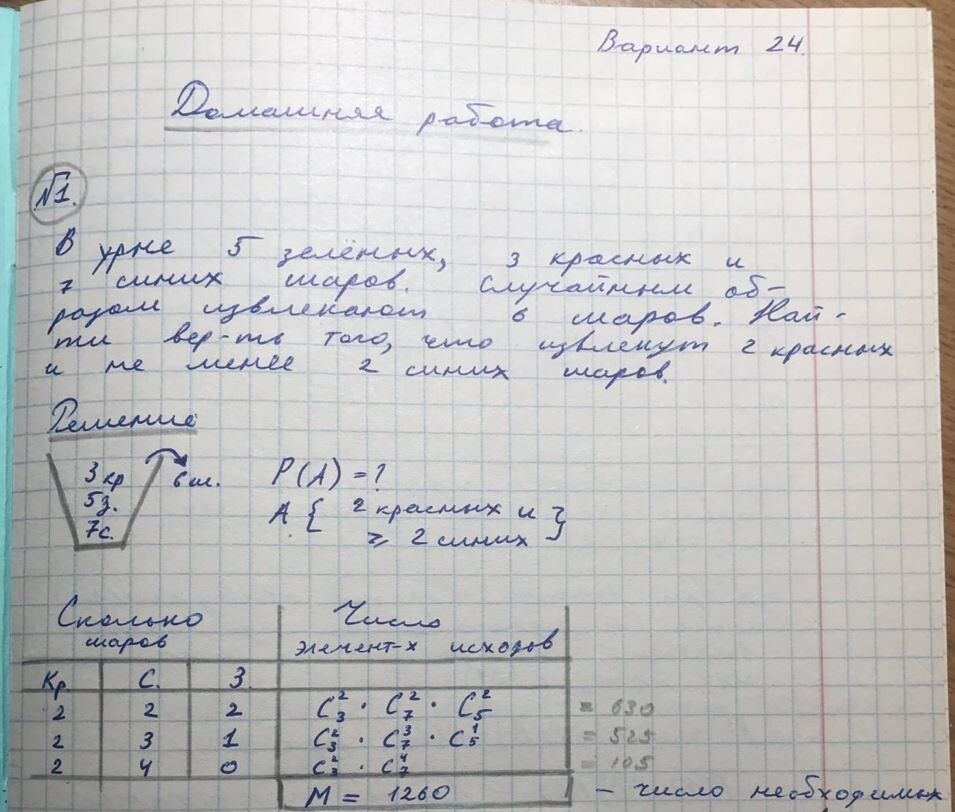 Вариант 24.
Домашняя работа.
№1.
В урне 5 зелёных, 3 красных и
7 синих шаров. Случайным об-
разом извлекают 6 шаров. Най-
ти вер-ть того, что извлекут 2 красных
и не менее 2 синих шаров.
Решение
3 кр 6 ш. P(A) = ?
5 з. A { 2 красных и }
7 с. ≥ 2 синих
Сколько Число
шаров элемент-х исходов
Кр. С. З.
2 2 2 C₃² · C₇² · C₅² = 630
2 3 1 C₃² · C₇³ · C₅¹ = 525
2 4 0 C₃² · C₇⁴ = 105
M = 1260 – число необходимых